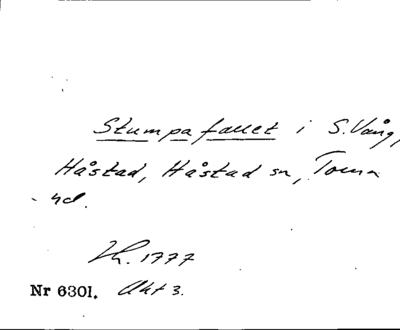 Stumpafallet i S.Vång,
Håstad, Håstad sn, Torna
hd.
Lh. 1777
Nr 6301. Akt 3.